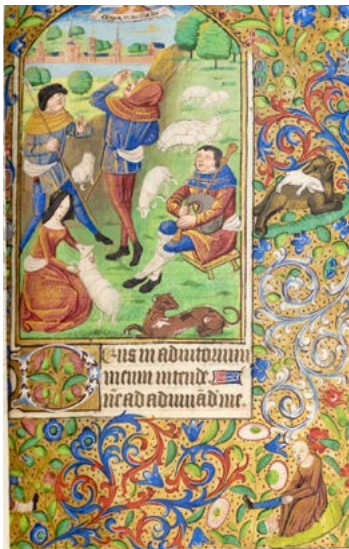 Deus in adiutorium
meum intende.
Dñe ad adiuuãd me.